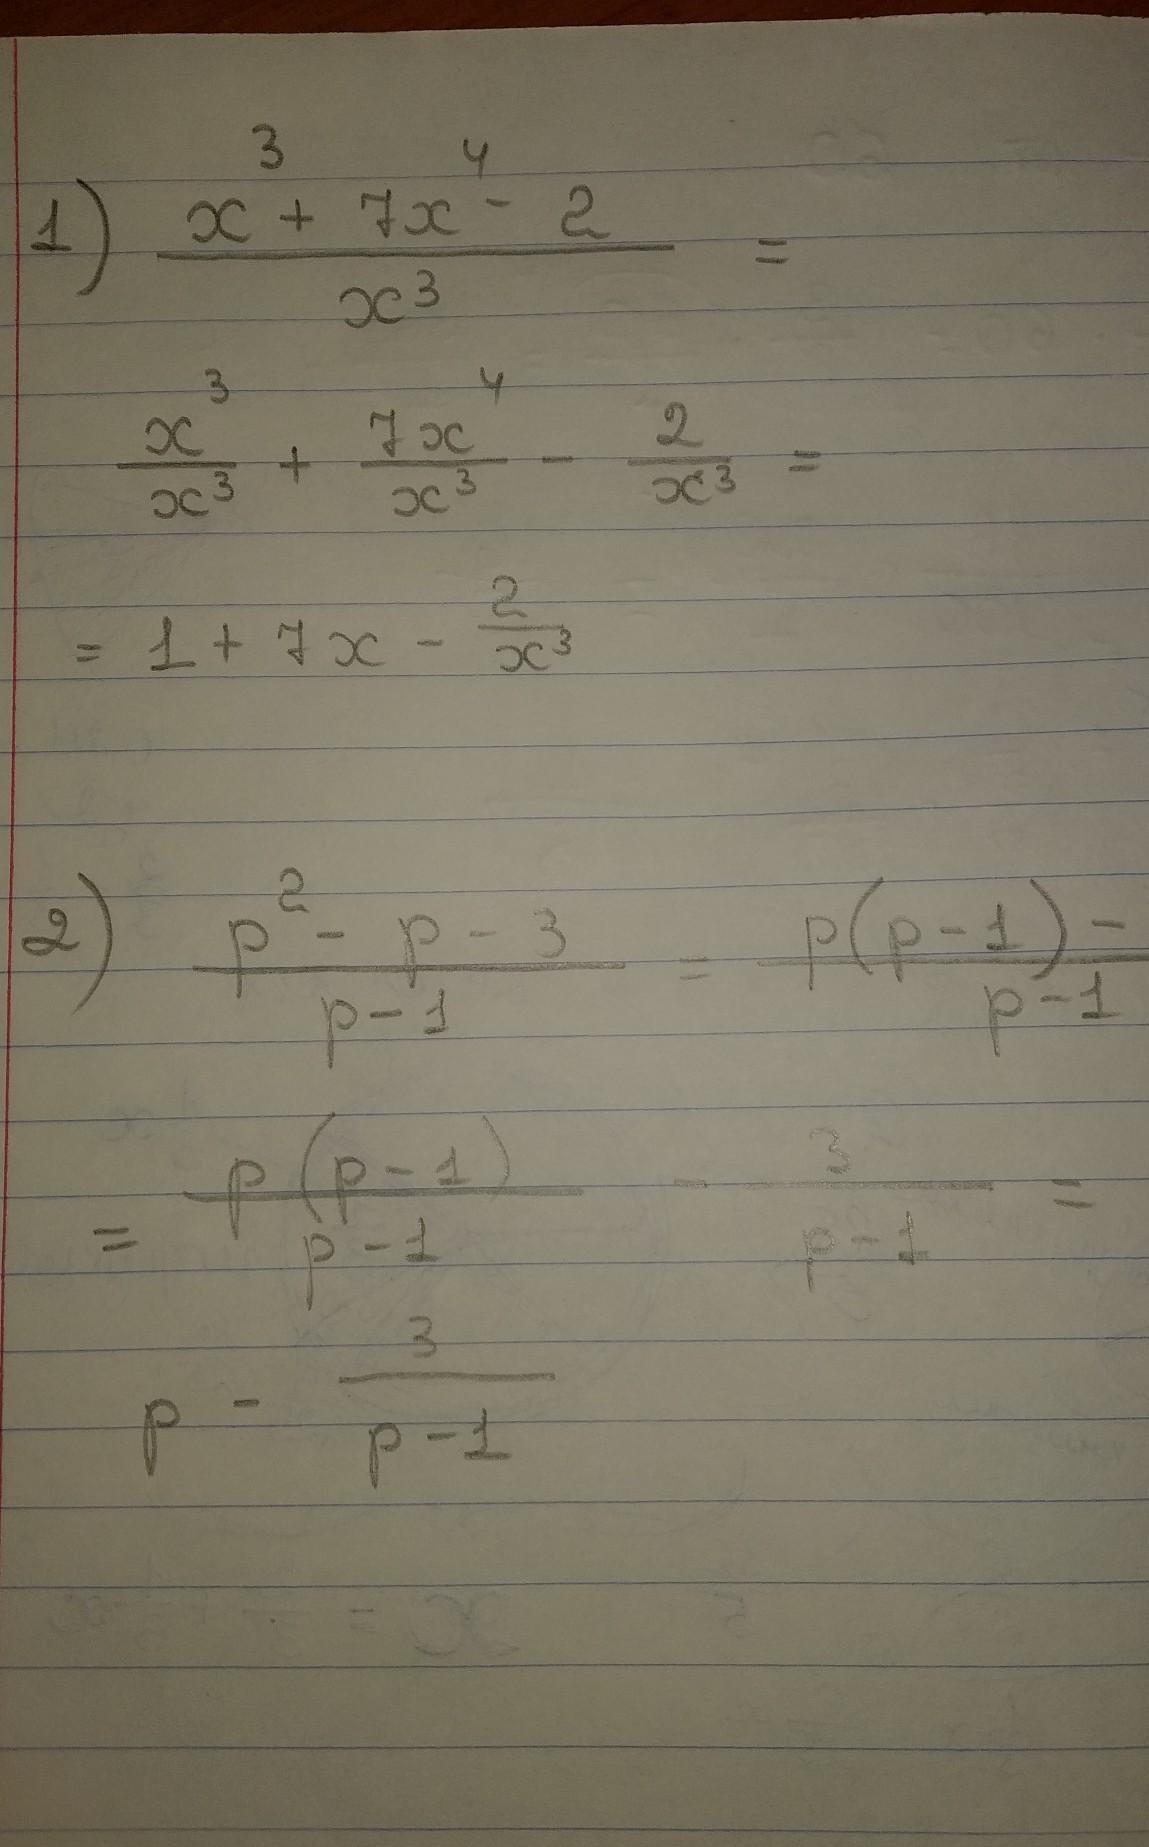 1) (x³ + 7x⁴ - 2) / x³ =
x³/x³ + 7x⁴/x³ - 2/x³ =
= 1 + 7x - 2/x³
2) (p² - p - 3) / (p - 1) = (p(p - 1) - / p - 1
= p(p - 1) / (p - 1) - 3 / (p - 1) =
p - 3 / (p - 1)